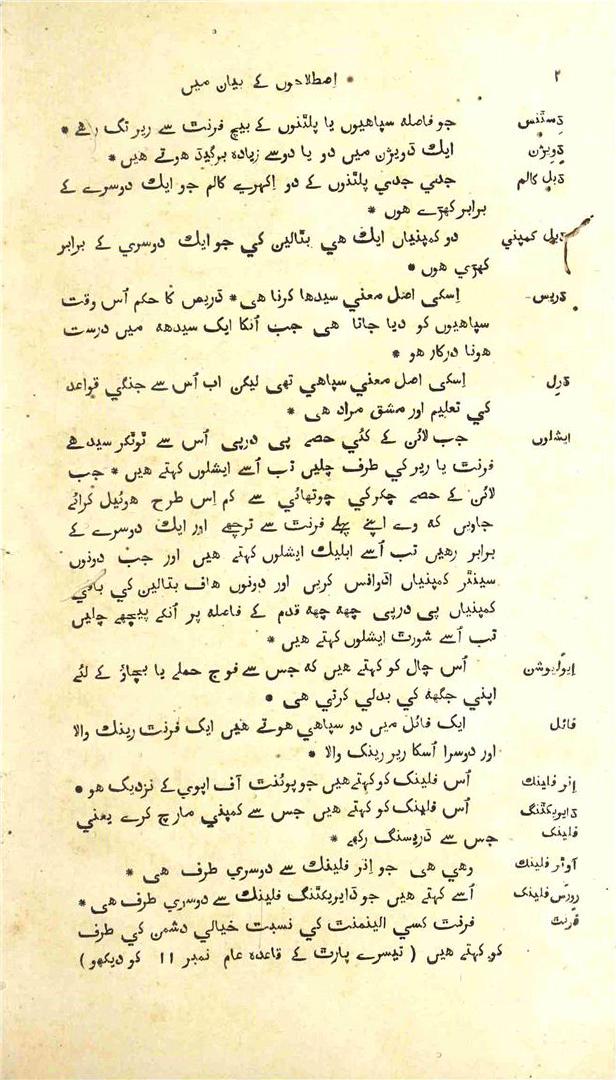 ۲ اِصطلاحوں کے بیان میں *
دِسٹنس جو فاصلہ سپاهیوں یا پلٹنوں کے بیچ فرنت سے ریر تک رهے *
ڈویژن ایك ڈویژن میں دو یا دو سے زیادہ برگیڈ هوتے هیں *
ڈبل کالم جدي جدي پلٹنوں کے دو اِکہریے کالم جو ایك دوسرے کے
برابر کهڑے هوں *
ڈبل کمپني دو کمپنیاں ایك هي بٹالین کي جو ایك دوسري کے برابر
کهڑي هوں *
ڈریس - اِسکي اصل معني سیدها کرنا هی * ڈریس کا حکم اُس وقت
سپاهیوں کو دیا جاتا هی جب اُنکا ایک سیدهہ میں درست
هونا درکار هو *
ڈرِل اِسکي اصل معني سپاهي تهی لیکن اب اُس سے جنگي قواعد
کي تعلیم اور مشق مراد هی *
ایشلوں جب لائن کے کئي حصے پی درپی اُس سے ٹوٹکر سیدهے
فرنت یا ریر کي طرف چلیں تب اُسے ایشلوں کہتے هیں * جب
لائن کے حصے چکر کي چوتهائي سے کم اِس طرح هوئیل کرائے
جاویں کہ وے اپنے پہلے فرنت سے ترچهے اور ایك دوسرے کے
برابر رهیں تب اُسے ابلیك ایشلوں کہتے هیں اور جب دونوں
سینٹر کمپنیاں اڈوانس کریں اور دونوں هاف بٹالین کي باقي
کمپنیاں پی درپی چهہ چهہ قدم کے فاصلہ پر اُنکے پیچهے چلیں
تب اُسے شورٹ ایشلوں کہتے هیں *
اِیولیوشن اُس چال کو کہتے هیں کہ جس سے فوج حملے یا بچاؤ کے لئے
اپني جگهہ کي بدلي کرتي هی *
فائل ایک فائل میں دو سپاهي هوتے هیں ایک فرنت رینك والا
اور دوسرا اُسکا ریر رینک والا *
اِنر فلینك اُس فلینک کو کہتے هیں جو پوئنٹ آف اپوي کے نزدیک هو *
ڈایریکٹنگ اُس فلینك کو کہتے هیں جس سے کمپني مارچ کرے یعني
فلینک جس سے ڈریسنگ رکهے *
آوٹر فلینك وهي هی جو اِنر فلینك سے دوسري طرف هی *
رِورس فلینك اُسے کہتے هیں جو ڈایریکٹنگ فلینك سے دوسري طرف هی *
فرنت فرنت کسي الینمنٹ کي نسبت خیالي دشمن کي طرف
کو کہتے هیں ( تیسرے پارٹ کے قاعدہ عام نمبر 11 کو دیکهو )